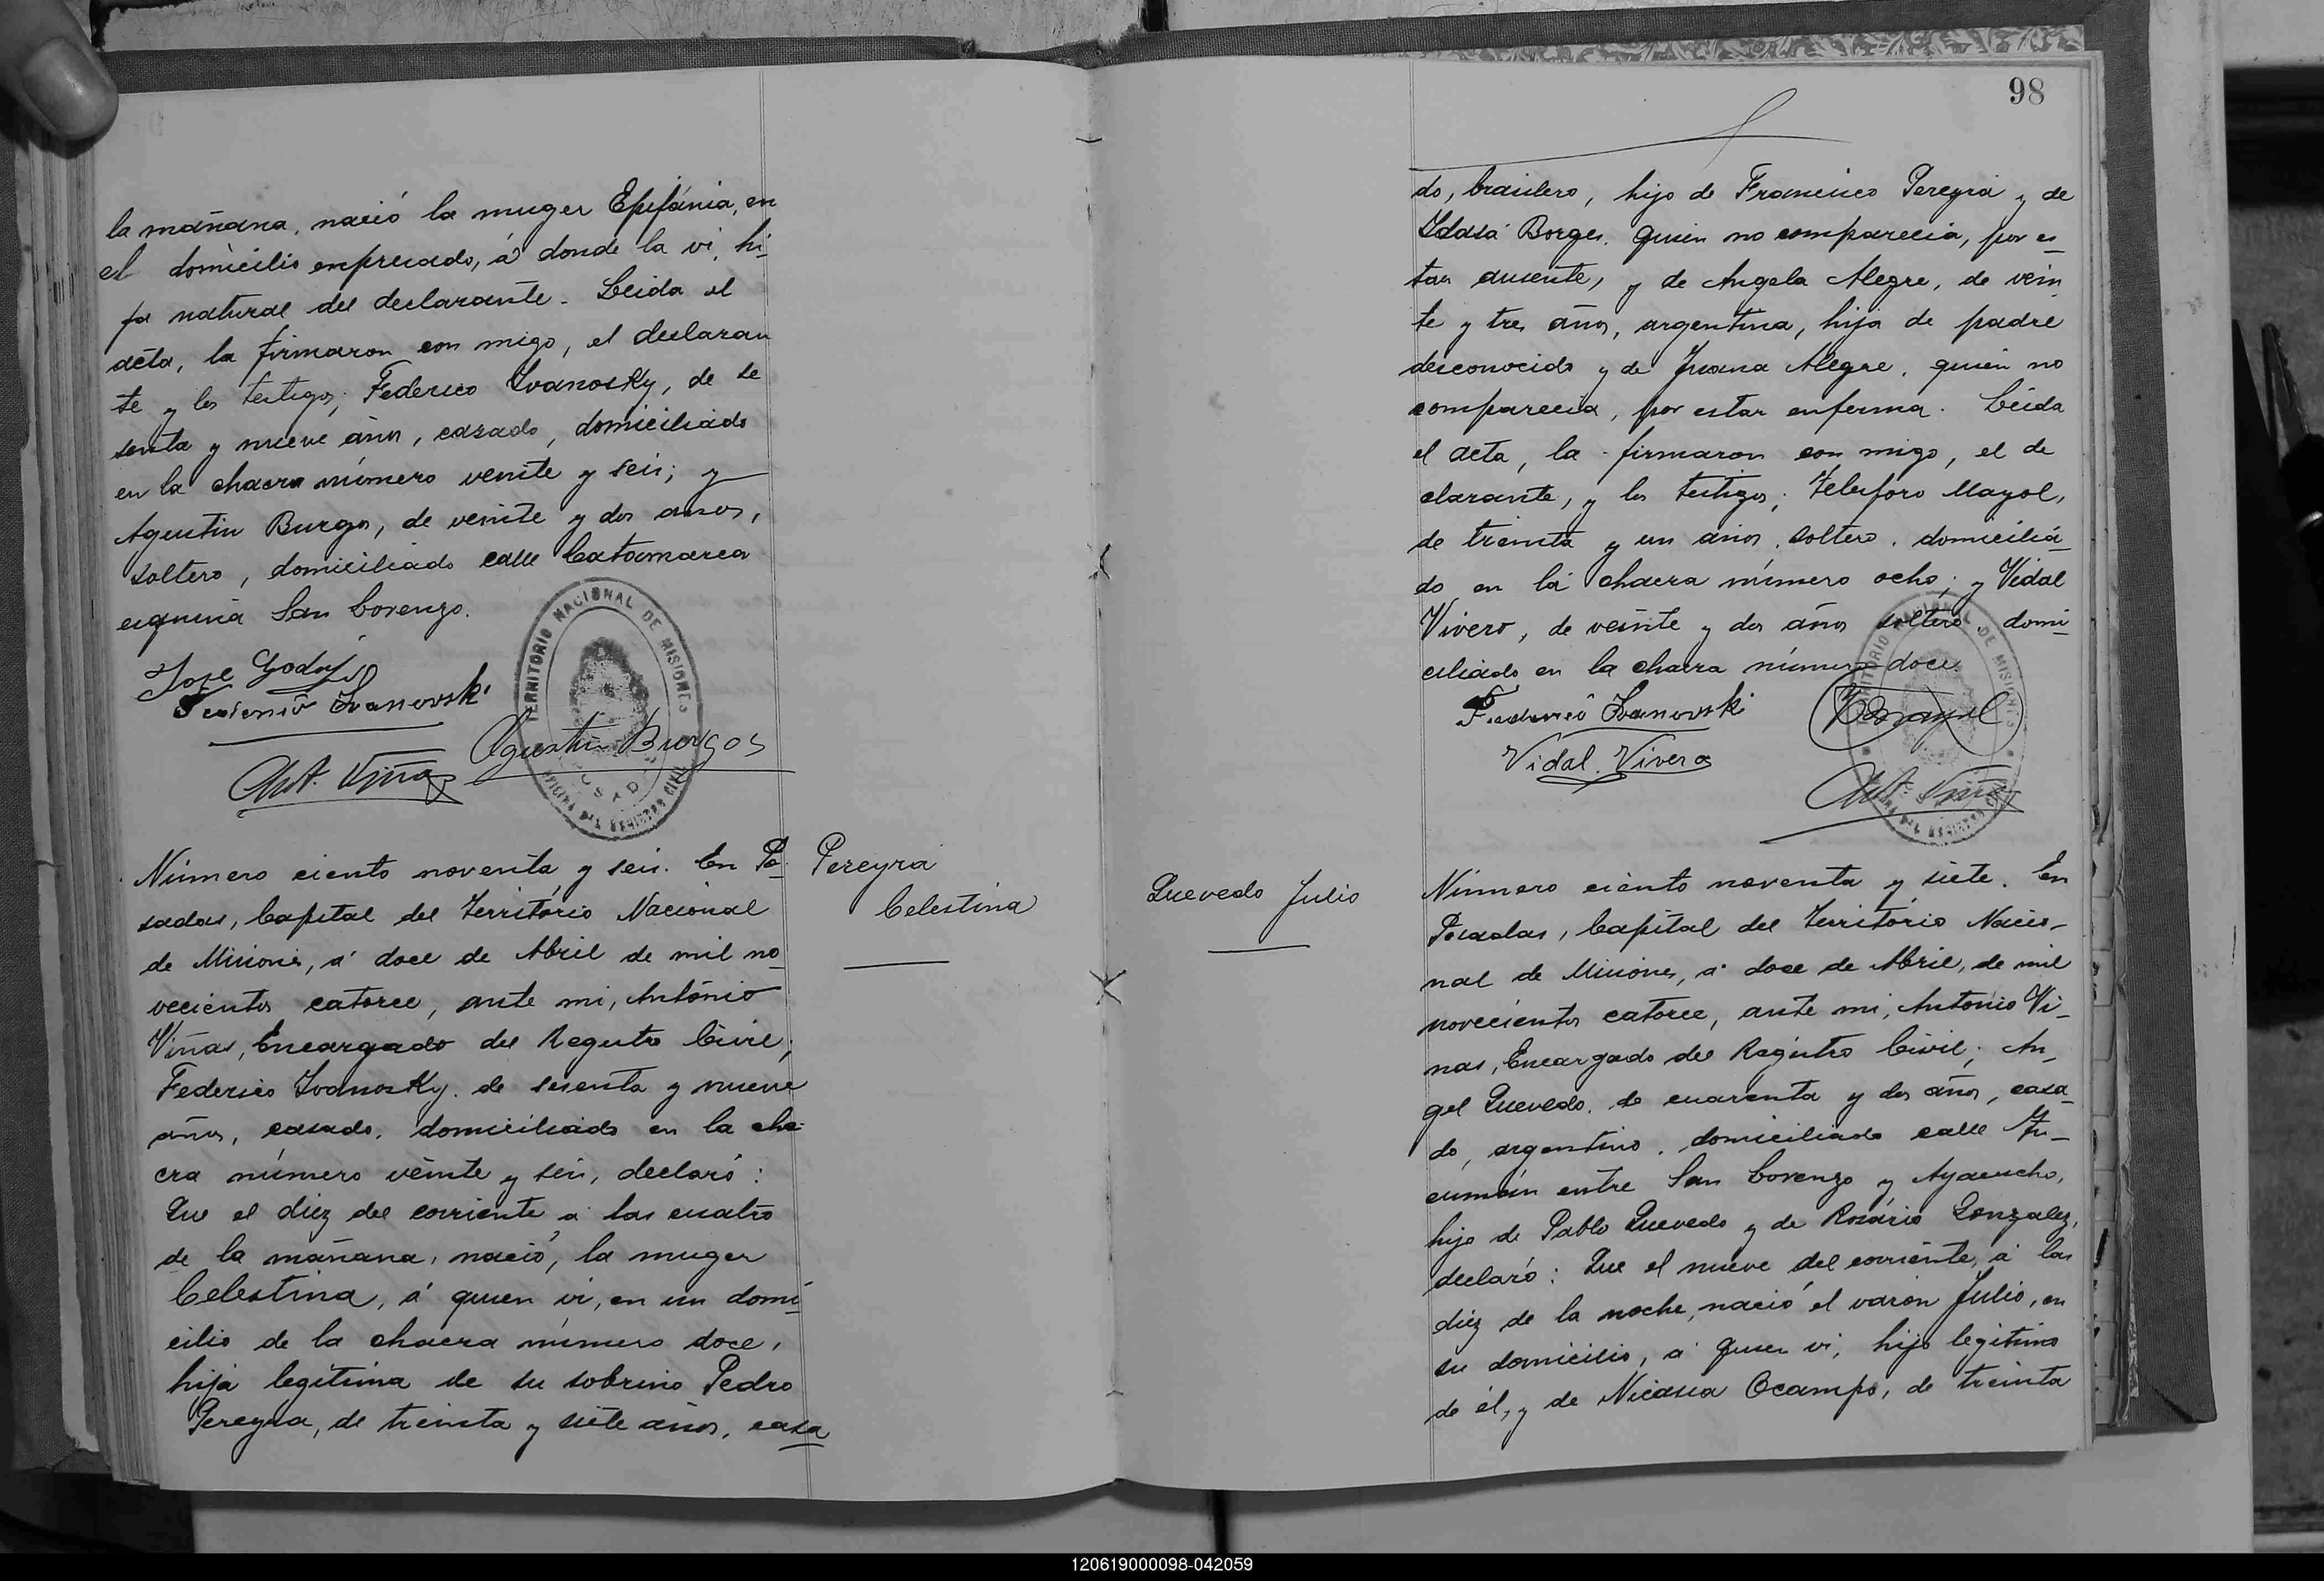 la mañana, nació la muger Epifánia, en
el domicilio expresado, á donde la vi, hi-
ja natural del declarante. Leida el
acta, la firmaron con migo, el declaran
te y los testigos; Federico Ivanosky, de se
senta y nueve años, casado, domiciliado
en la chacra número veinte y seis; y
Agustin Burgos, de veinte y dos años,
soltero, domiciliado calle Catamarca
esquina San Lorenzo.
Jose Godoy
Federico Ivanovski
Agustin Burgos
Ant. Viñas
TERRITORIO NACIONAL DE MISIONES
POSADAS
OFICINA DEL REGISTRO CIVIL
Número ciento noventa y seis. En Po-
sadas, Capital del Território Nacional
de Misiones, á doce de Abril de mil no-
vecientos catorce, ante mi, António
Viñas, Encargado del Registro Civil;
Federico Ivanosky. de sesenta y nueve
años, casado, domiciliado en la cha-
cra número veinte y seis, declaró:
Que el diez del corriente á las cuatro
de la mañana, nació, la muger
Celestina, á quien vi, en un domi-
cilio de la chacra número doce,
hija legitima de su sobrino Pedro
Pereyra, de treinta y siete años, casa
Pereyra
Celestina
98
do, brasilero, hijo de Francisco Pereyra y de
Borges. quien no comparecia, por es-
tar ausente, y de Angela Alegre, de vein
te y tres años, argentina, hija de padre
desconocido y de Juana Alegre, quien no
comparecia, por estar enferma. Leida
el acta, la firmaron con migo, el de
clarante, y los testigos; Telesforo Mayol,
de treinta y un años, soltero, domicilia-
do en la chacra número ocho; y Vidal
Vivero, de veinte y dos años soltero, domi-
ciliado en la chacra número doce.
Federico Ivanovski
T Mayol
Vidal Vivero
Ant. Viñas
TERRITORIO NACIONAL DE MISIONES
OFICINA DEL REGISTRO CIVIL
Quevedo Julio
Número ciento noventa y siete. En
Posadas, Capital del Território Nacio-
nal de Misiones, á doce de Abril, de mil
novecientos catorce, ante mi, Antonio Vi-
ñas, Encargado del Registro Civil; An-
gel Quevedo, de cuarenta y dos años, casa-
do, argentino, domiciliado calle Tu-
cumán entre San Lorenzo y Ayacucho,
hijo de Pablo Quevedo y de Rosário Gonzalez,
declaró: Que el nueve del corriente, á las
diez de la noche, nació el varón Julio, en
su domicilio, á quien vi, hijo legitimo
de él, y de Nicasia Ocampo, de treinta
120619000098-042059